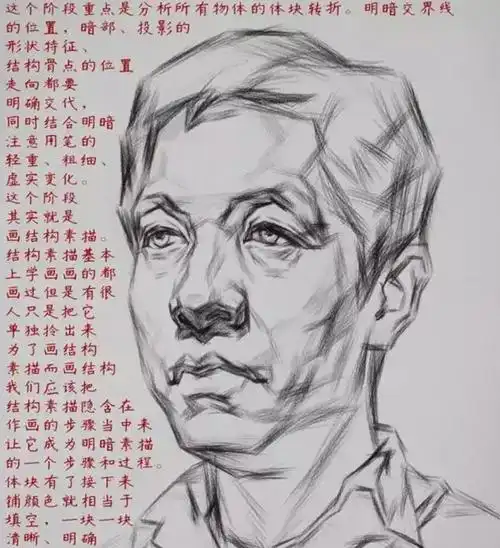 这个阶段重点是分析所有物体的体块转折。明暗交界线
的位置，暗部、投影的
形状特征、
结构骨点的位置
走向都要
明确交代，
同时结合明暗
注意用笔的
轻重、粗细、
虚实变化。
这个阶段
其实就是
画结构素描。
结构素描基本
上学画画的都
画过但是有很
人只是把它
单独拎出来
为了画结构
素描而画结构
我们应该把
结构素描隐含在
作画的步骤当中来
让它成为明暗素描
的一个步骤和过程。
体块有了接下来
铺颜色就相当于
填空，一块一块
清晰、明确